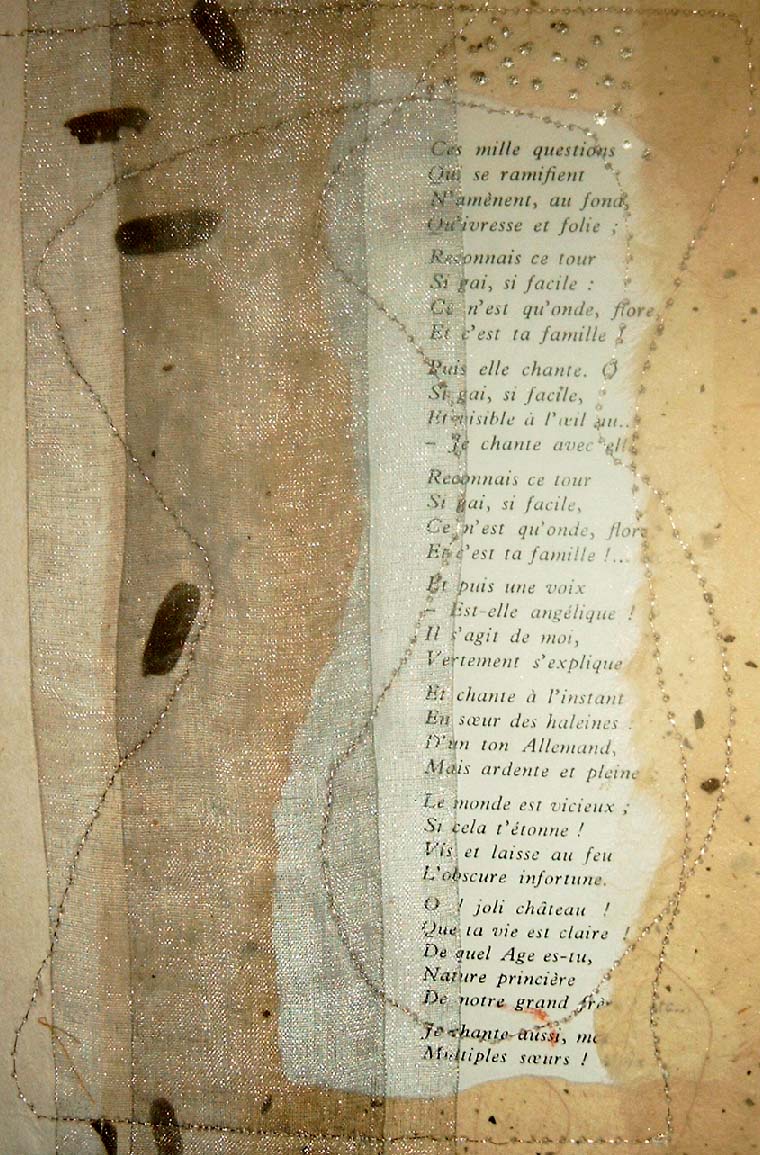 Ces mille questions
Qui se ramifient
N'amènent, au fond,
Qu'ivresse et folie ;
Reconnais ce tour
Si gai, si facile :
Ce n'est qu'onde, flore,
Et c'est ta famille !
Puis elle chante. Ô
Si gai, si facile,
Et visible à l'œil nu...
– Je chante avec elle
Reconnais ce tour
Si gai, si facile,
Ce n'est qu'onde, flore
Et c'est ta famille !...
Et puis une voix
– Est-elle angélique !
Il s'agit de moi,
Vertement s'explique
Et chante à l'instant
En sœur des haleines :
D'un ton Allemand,
Mais ardente et pleine
Le monde est vicieux ;
Si cela t'étonne !
Vis et laisse au feu
L'obscure infortune.
O ! joli château !
Que ta vie est claire !
De quel Age es-tu,
Nature princière
De notre grand frère
Je chante aussi, moi
Multiples sœurs !